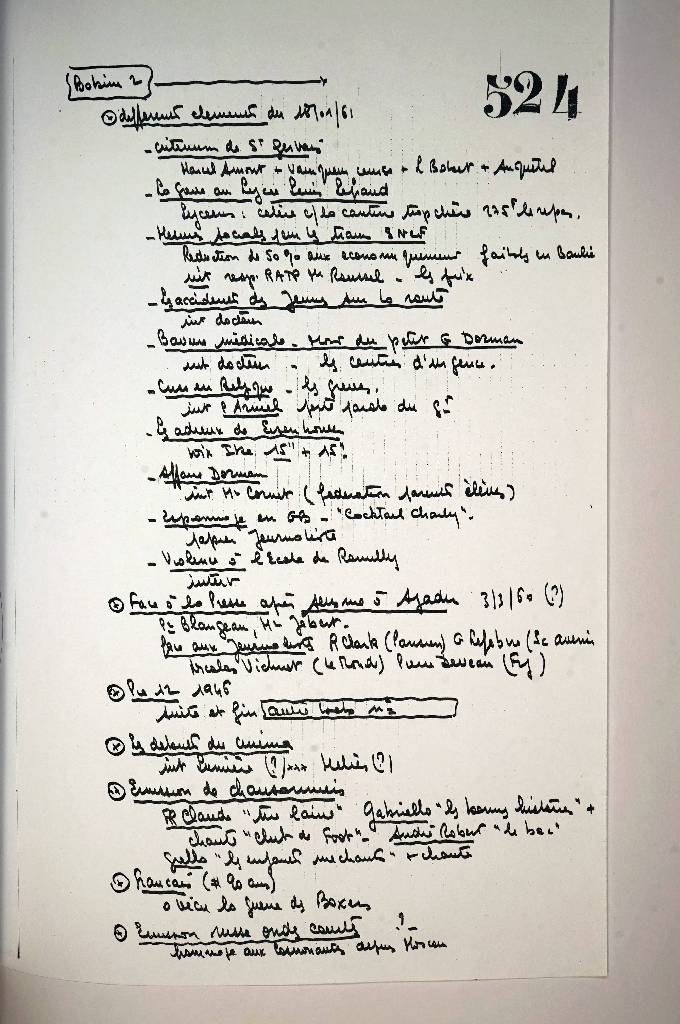 Bobine 2
524
différents elements du 18/01/61
- criterium de St Gervais
Marcel Amont + vainqueur + L Bobet + Anquetil
- La Greve au Lycée
Lyceens : colère c/ la cantine trop chère 275F le repas.
- Mesures sociales pour les trains SNCF
Reduction de 50% aux economiquement faibles en Banlieue
int resp. RATP Mr Roussel - les prix
- Les accidents des Jeunes sur la route
int docteur
- Bavure médicale - Mort du petit G Dorman
int docteur - les centres d'urgence.
- Crise en Belgique - les greves.
int porte parole du gt
- Les adieux de Eisenhower
voix Ike 15" + 15".
- Affaire Dorman
int Mr Cornet (federation parents élèves)
- Espionnage en GB - "Cocktail Charly".
papier Journaliste
- Violence à l'Ecole de Romilly
interv
Face à la Presse après seisme à Agadir 3/3/60 (?)
Pr Blangean, Mr Jobert.
face aux Journalistes R Clark (Parisien) G Lefebvre (Sc avenir
Nicolas Vichney (Le Monde) Pierre
12 1946
suite et fin autre bobine n°
Les debuts du cinema
int Lumière (?) xxx Meliès (?)
Emission de chansonniers
PR Claude "tire laine" Gabriello "les bonnes histoires" +
chante "club de Foot" - André Robert "le bac"
Grello "les enfants mechants" + chante
Francais (# 90 ans)
a vecu la guerre des Boxers
Emission russe ondes courtes ?
hommage aux Cosmonautes depuis Moscou